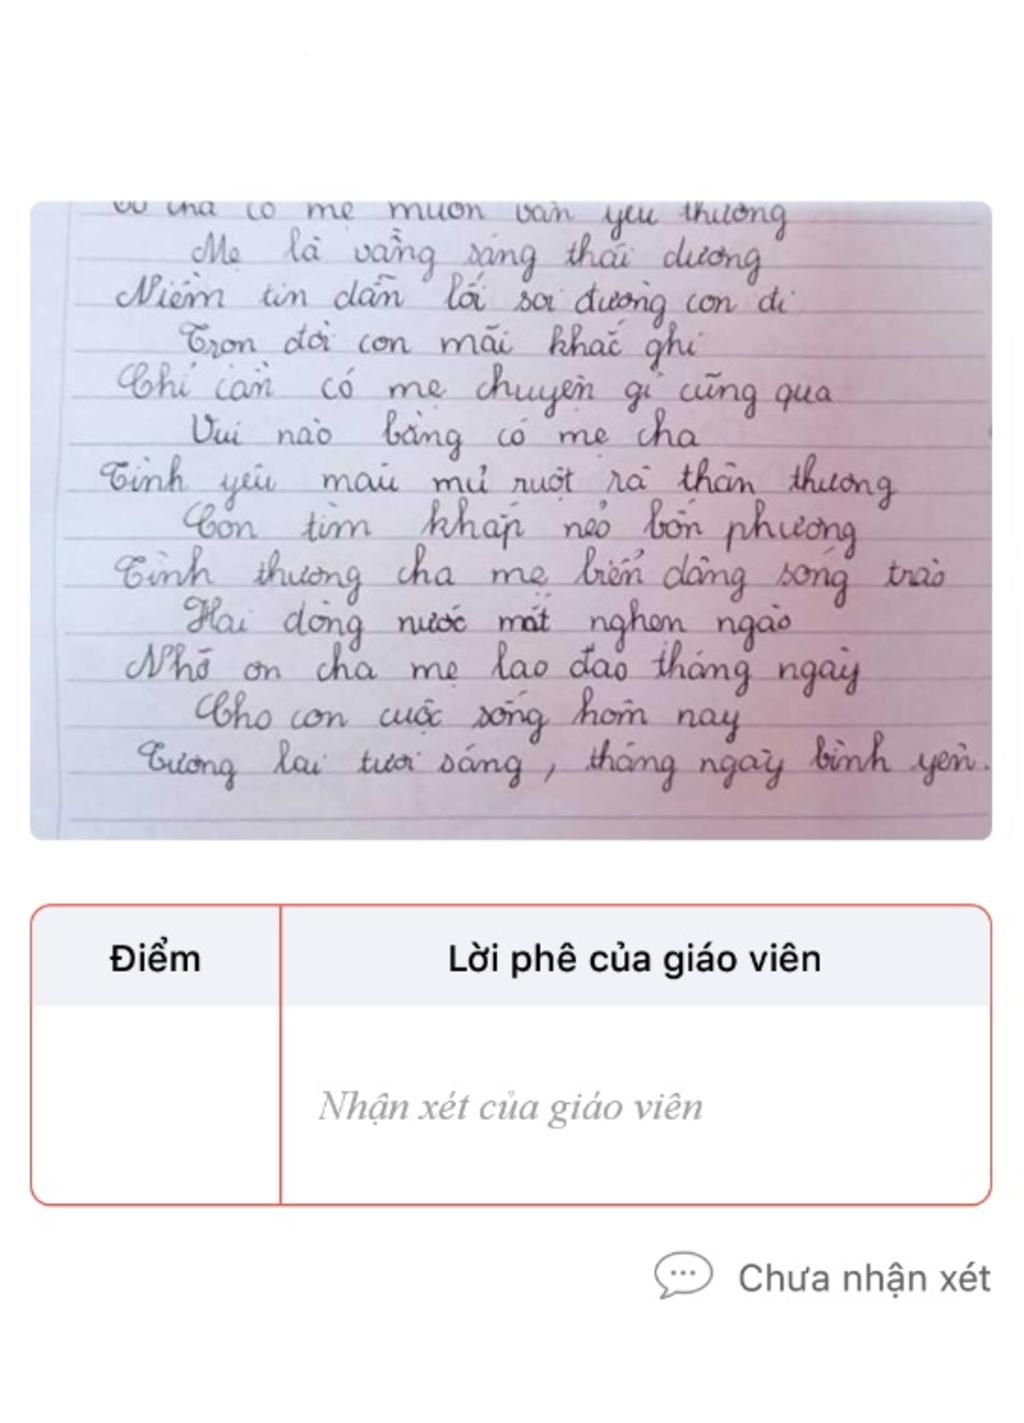 có mẹ muôn vàn yêu thương
Mẹ là vầng sáng thái dương
Niềm tin dẫn lối soi đường con đi
Trọn đời con mãi khắc ghi
Chỉ cần có mẹ chuyện gì cũng qua
Vui nào bằng có mẹ cha
Tình yêu máu mủ ruột rà thân thương
Con tìm khắp nẻo bốn phương
Tình thương cha mẹ biển dâng sóng trào
Hai dòng nước mắt nghẹn ngào
Nhớ ơn cha mẹ lao đao tháng ngày
Cho con cuộc sống hôm nay
Tương lai tươi sáng, tháng ngày bình yên.
Điểm
Lời phê của giáo viên
Nhận xét của giáo viên
Chưa nhận xét